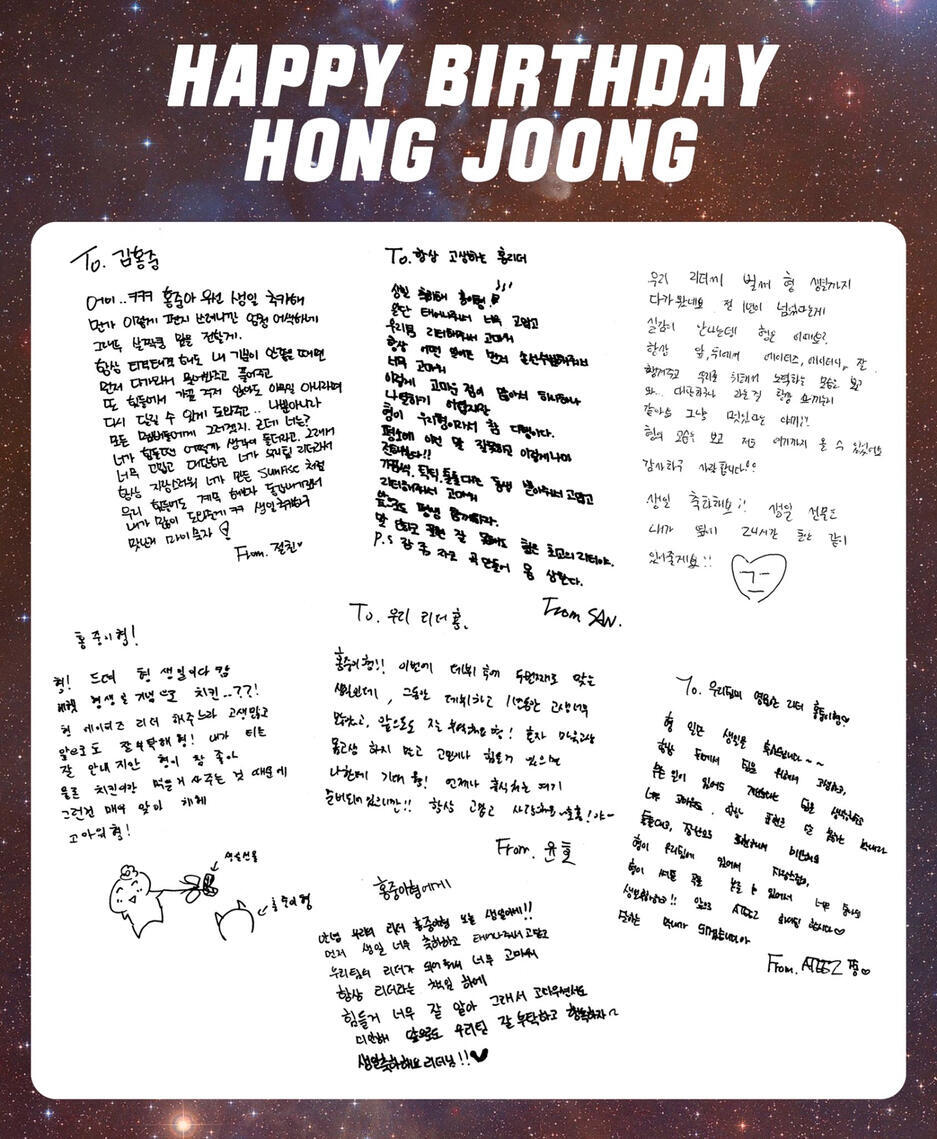 HAPPY BIRTHDAY
HONG JOONG
To. 김홍중
어이..ㅋㅋㅋ 홍중아 우선 생일 축하해
막상 이렇게 편지 쓰려니간 엄청 어색하네
그래두 살짝쿵 맘을 전할게.
항상 티격태격 해도 내 기분이 안좋을 때면
먼저 다가와서 물어봐주고 풀어주고
또 힘들어서 가끔 주저 앉아도 아무일 아니라며
다시 달릴 수 있게 도와주고.. 나뿐아니라
모든 멤버들에게 그러겠지. 근데 너는?
너가 힘들땐 어떡할까 생각이 들더라고. 그래서
너무 고맙고 대단하고 너가 우리팀 리더라서
항상 자랑스러워 너가 모든 Sunrise 처럼
우리 힘들어도 계속 해보자
내가 많이 도와줄게 ㅋㅋ 생일축하하구
맛난거 마이 묵자
From. 절친
To. 항상 고생하는 홍리더
생일 축하해 홍이형!
일단 태어나줘서 너무 고맙고
우리팀 리더해줘서 고마워
항상 어떤 일에도 먼저 솔선수범해줘서
너무 고마워
이렇게 고마운 점이 많아서 하나하나
나열하기 어렵지만
형이 우리형이라서 참 다행이다.
평소에 이런 말 잘못하고 이렇게나마
전한다!!
가끔씩, 툭툭, 틀틀대는 동생 받아줘서 고맙고
리더해줘서 고마워
앞으로도 평생 함께하자.
말 안하고 표현 잘 못해도 형은 최고의 리더야.
P.S 감중 자고 곡 만들어 몸 상한다.
From SAN.
우리 리더께 벌써 형 생일까지
다가왔네요 전 1년이 넘었다는게
실감이 난나는데 형은 어때요?
항상 앞,뒤에서 에이티즈, 에이티니, 잘
챙겨주고 우리를 위해서 노력하는 모습을 보고
와.. 대단하구나 라는걸 항상 느끼는거
같아요 그냥 멋있다는 얘기!!
형의 모습을 보고 저도 여기까지 올 수 있었어요
감사하구 사랑합니다!!
생일 축하해요!! 생일 선물로
내가 옆에 24시간 동안 같이
있어줄게요!!
홍중이형!
형! 드뎌 형 생일이다
헤헷 형생일 기념으로 치킨..??!
형 에이티즈 리더 해주느라 고생많고
앞으로도 잘부탁해 형! 내가 티는
잘 안내지만 형이 참 좋아
물론 치킨이랑 먹을거 사주는 것 때문에
그런건 매우 맞아 헤헤
고마워 형!
생일선물
홍중이형
To. 우리 리더 홍.
홍중이형!! 이번에 데뷔 후에 두번째로 맞는
생일인데, 그동안 데뷔하고 1년동안 고생너무
많았고, 앞으로도 잘 부탁해요 형! 혼자 마음고생
몸고생 하지 말고 고민이나 힘든거 있으면
나한테 기대 형! 언제나 휴식처는 여기
준비되어있으니깐!! 항상 고맙고 사랑해요~홍홍!야~
From. 윤호
홍중아형에게
안녕 우리의 리더 홍중아형 오늘 생일이네!!
먼저 생일 너무 축하하고 태어나줘서 고맙고
우리팀의 리더가 되어줘서 너무 고마워
항상 리더라는 책임 하에
힘들거 너무 잘 알아 그래서 고마우면서도
미안해 앞으로도 우리팀 잘 부탁하고 행복하자~
생일축하해요 리더님!!
To. 우리팀의 영원한 리더 홍중이형
형 일단 생일을 축하합니다~~
항상 뒤에서 팀을 위해서 고생하고,
형이 우리팀에 있어서 자랑스럽고,
From. ATEEZ 종